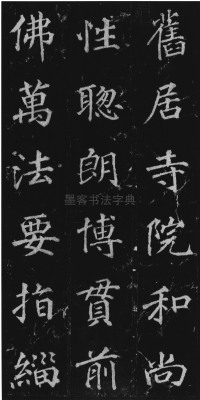 舊居寺院和尚
性聰朗博貫前
佛萬法要指緇
墨客书法字典